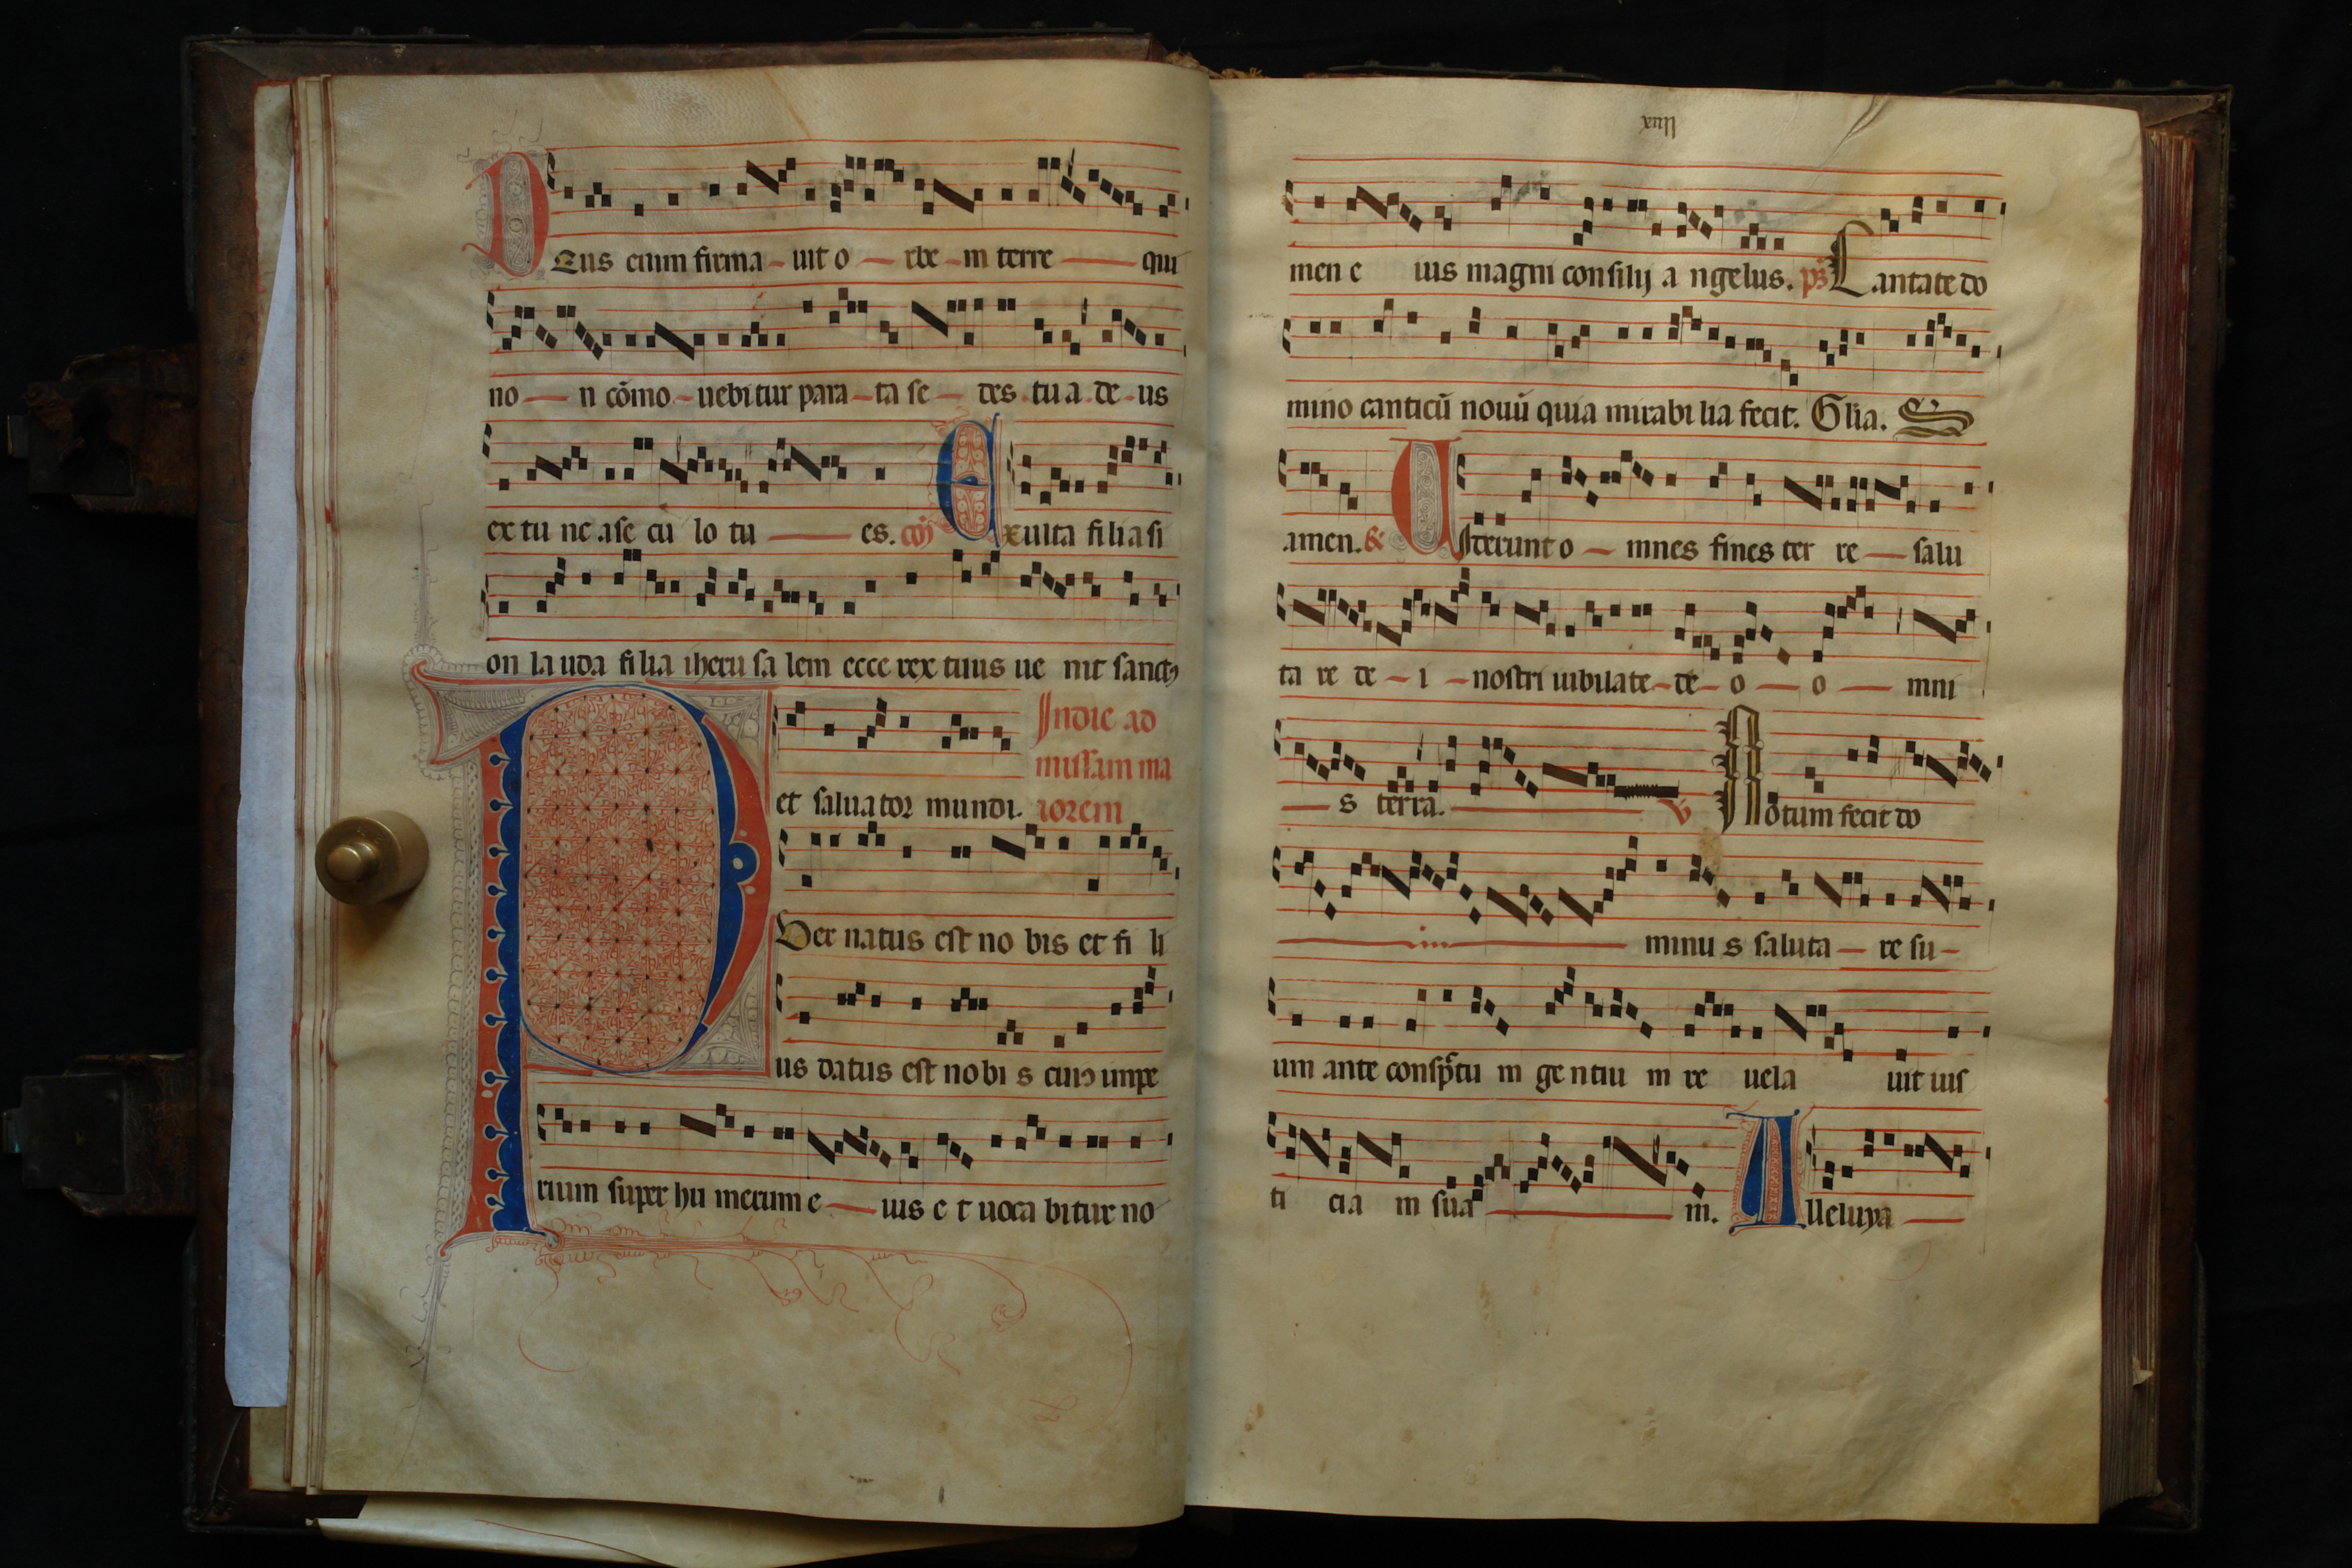 DEus enim firma - uit o - rbe - m terre - qui
no - n cōmo - uebitur para - ta se - des tu a de - us
ex tu nc a se cu lo tu - es. cōȷ Exulta filia si
on lauda filia iheru salem ecce rex tuus ue nit sanctꝰ
et saluator mundi. In die ad
missam ma
iorem
PUer natus est no bis et fi li
us datus est nobi s cuius impe
rium super hu merum e - ius e t uoca bitur no
xuii
men e ius magni consilij a ngelus. ps Cantate do
mino canticū nouū quia mirabi lia fecit. Glia. S
amen. & UIderunt o - mnes fines ter re - salu
ta re de - i - nostri iubilate - de - o - o - mni
- s terra. - V Notum fecit do
- in - minu s saluta - re su -
um ante conspctu m gentiu m re uela uit ius
ti cia m sua - m. Alleluya -